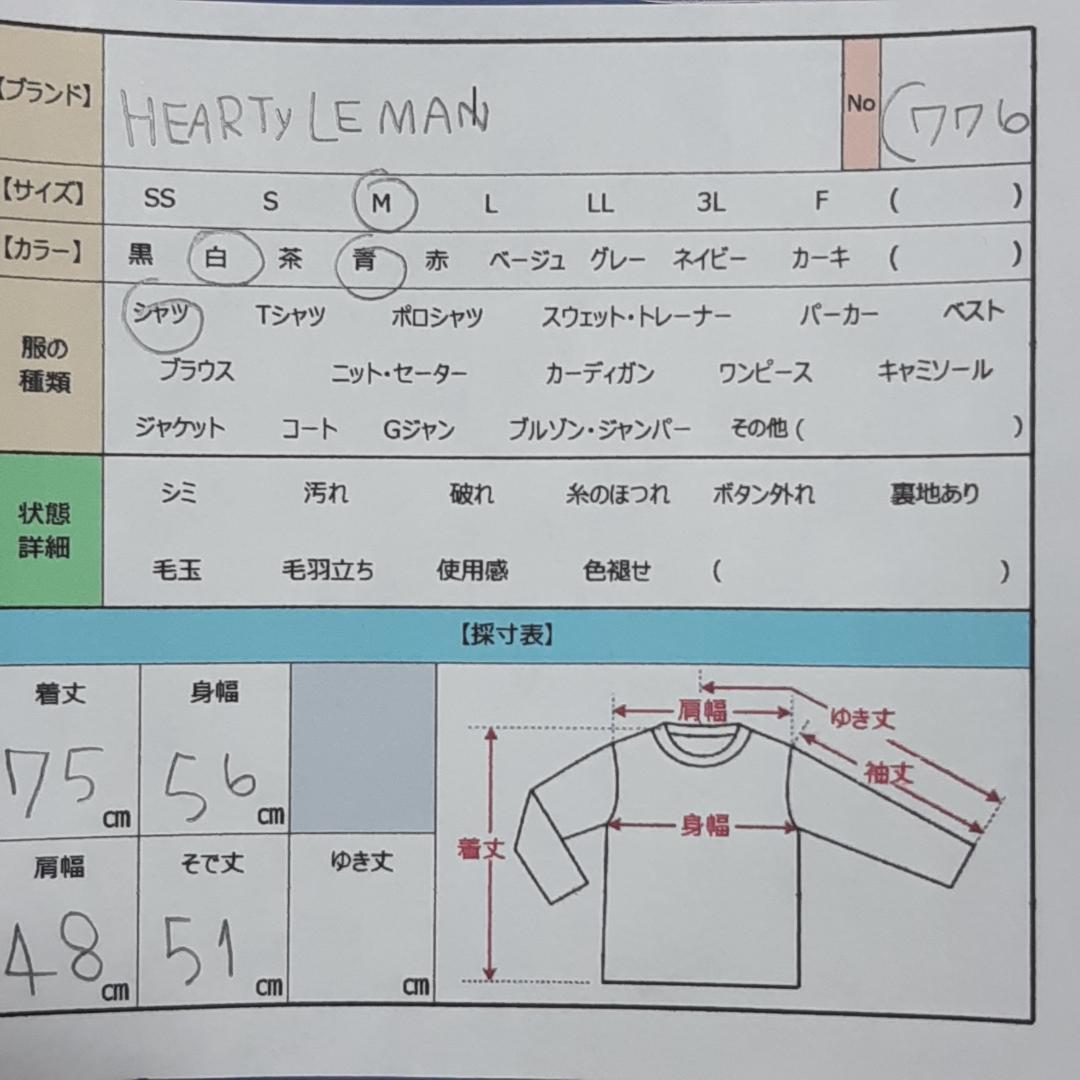 【ブランド】 HEARTY LE MANN No (776
【サイズ】 SS S M L LL 3L F ( )
【カラー】 黒 白 茶 青 赤 ベージュ グレー ネイビー カーキ ( )
服の種類
シャツ Tシャツ ポロシャツ スウェット・トレーナー パーカー ベスト
ブラウス ニット・セーター カーディガン ワンピース キャミソール
ジャケット コート Gジャン ブルゾン・ジャンパー その他 ( )
状態詳細
シミ 汚れ 破れ 糸のほつれ ボタン外れ 裏地あり
毛玉 毛羽立ち 使用感 色褪せ ( )
【採寸表】
着丈 身幅
75 cm 56 cm
肩幅 そで丈 ゆき丈
48 cm 51 cm cm
肩幅
ゆき丈
袖丈
身幅
着丈